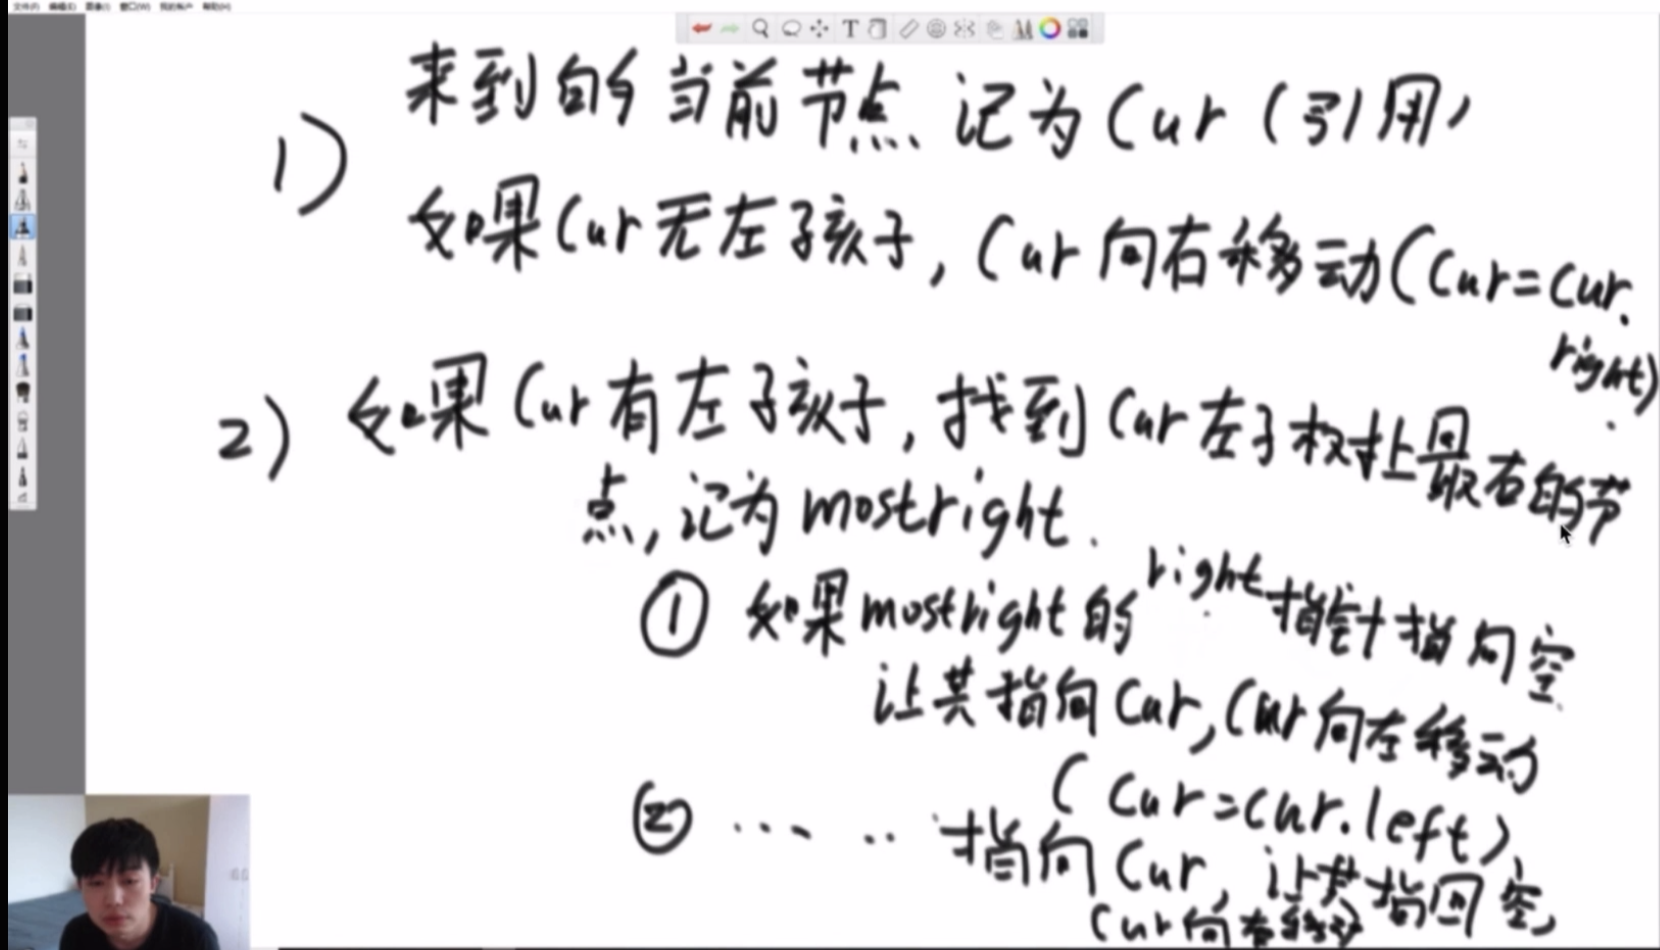 文件(F) 编辑(E) 图像(I) 窗口(W) 我的账户 帮助(H)
1) 来到的当前节点记为Cur(引用)
如果Cur无左子孩子,Cur向右移动(Cur=cur.
right)
2) 如果Cur有左子孩子,找到Cur左子树上最右的节
点,记为mostright.
① 如果mostright的right指针指向空
让其指向Cur,Cur向左移动
(Cur=cur.left)
② ... .. 指向Cur,让其指回空,
Cur向右移动